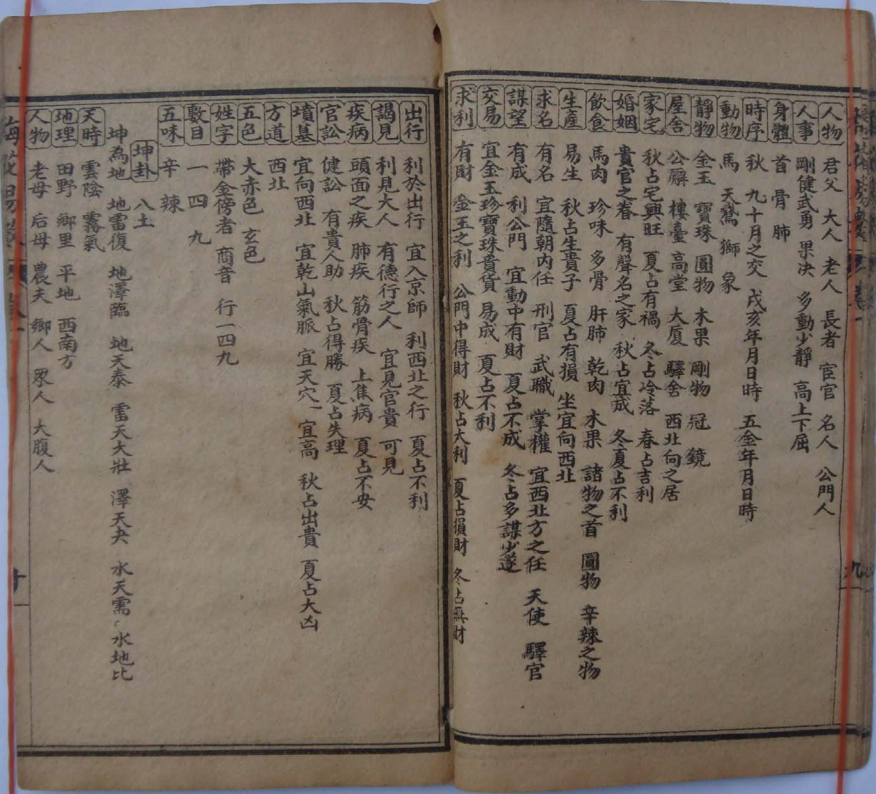 人物 君父 大人 老人 長者 宦官 名人 公門人
人事 剛健武勇 果决 多動少靜 高上下屈
身體 首 骨 肺
時序 秋 九十月之交 戌亥年月日時 五金年月日時
動物 馬 天鵞 獅 象
靜物 金玉 寶珠 圓物 木果 剛物 冠 鏡
屋舍 公廨 樓臺 高堂 大廈 驛舍 西北向之居
家宅 秋占宅興旺 夏占有禍 冬占冷落 春占吉利
婚姻 貴官之眷 有聲名之家 秋占宜成 冬夏占不利
飲食 馬肉 珍味 多骨 肝肺 乾肉 木果 諸物之首 圓物 辛辣之物
生產 易生 秋占生貴子 夏占有損 坐宜向西北
求名 有名 宜隨朝內任 刑官 武職 掌權 宜西北方之任 天使 驛官
謀望 有成 利公門 宜動中有財 夏占不成 冬占多謀少遂
交易 宜金玉珍寶珠貴貨 易成 夏占不利
求利 有財 金玉之利 公門中得財 秋占大利 夏占損財 冬占無財
出行 利於出行 宜入京師 利西北之行 夏占不利
謁見 利見大人 有德行之人 宜見官貴 可見
疾病 頭面之疾 肺疾 筋骨疾 上焦病 夏占不安
官訟 健訟 有貴人助 秋占得勝 夏占失理
墳墓 宜向西北 宜乾山氣脈 宜天穴 宜高 秋占出貴 夏占大凶
方道 西北
五色 大赤色 玄色
姓字 帶金傍者 商音 行一四九
數目 一 四 九
五味 辛 辣
坤卦 八土
坤為地 地雷復 地澤臨 地天泰 雷天大壯 澤天夬 水天需 水地比
天時 雲陰 霧氣
地理 田野 鄉里 平地 西南方
人物 老母 后母 農夫 鄉人 眾人 大腹人
十
九